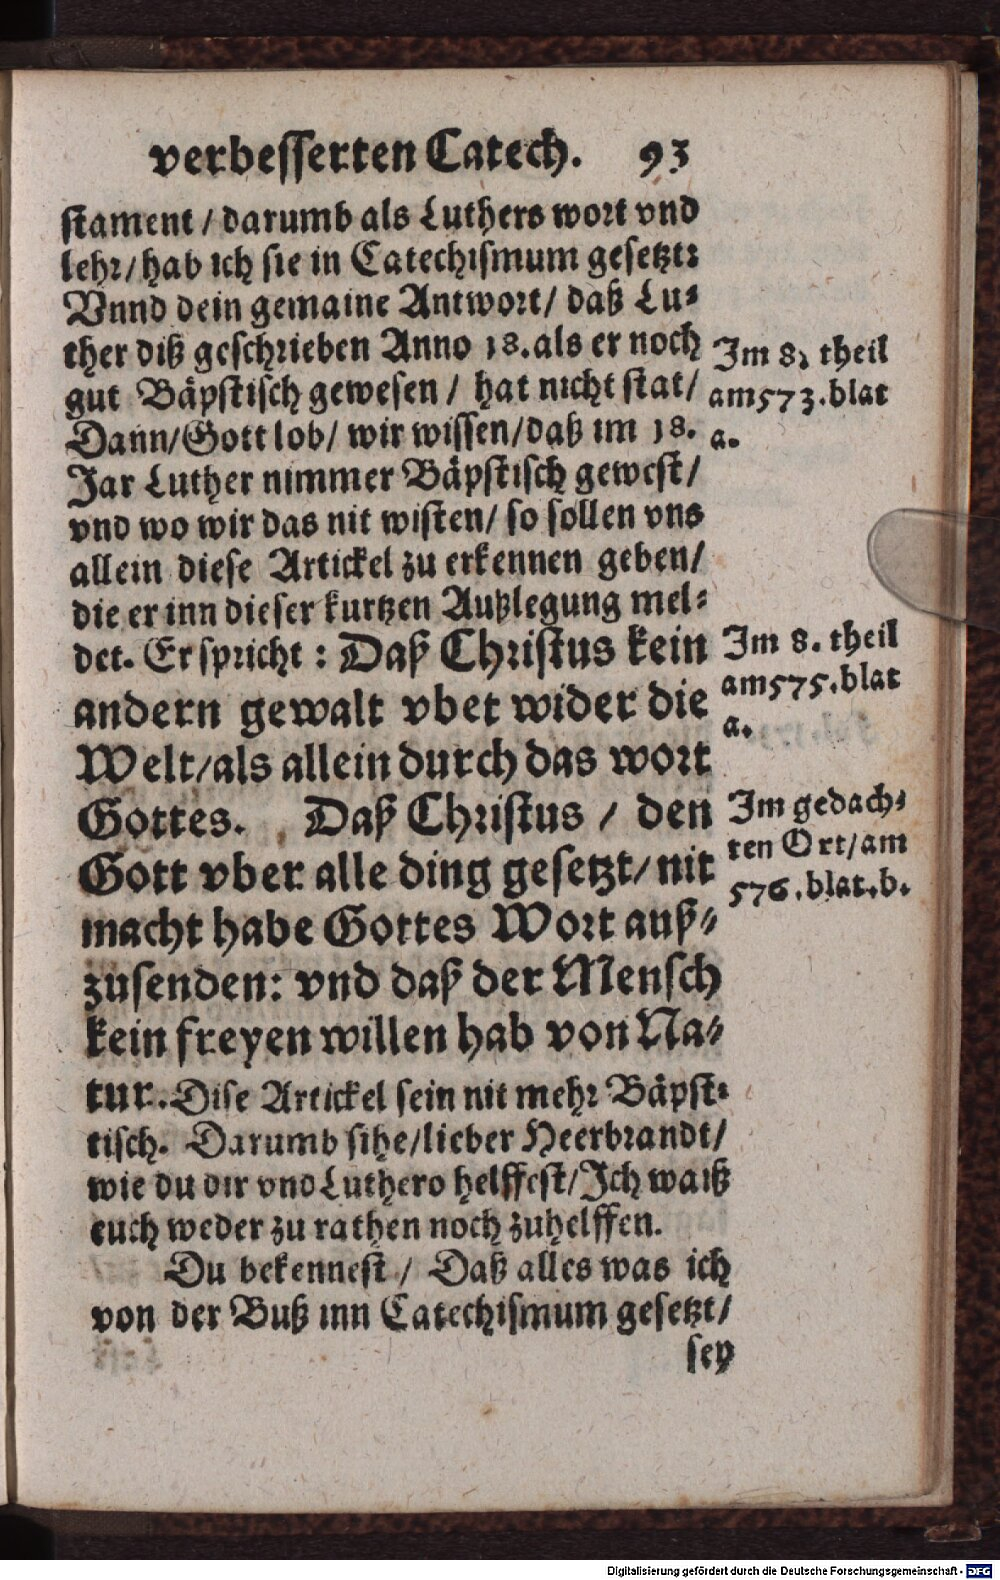 verbesserten Catech. 93
stament / darumb als Luthers wort vnd
lehr / hab ich sie in Catechismum gesetzt:
Vnnd dein gemaine Antwort / daß Lu-
ther diß geschrieben Anno 18. als er noch
gut Bäpstisch gewesen / hat nicht stat /
Dann / Gott lob / wir wissen / daß im 18.
Jar Luther nimmer Bäpstisch gewest /
vnd wo wir das nit wisten / so sollen vns
allein diese Artickel zu erkennen geben /
die er inn dieser kurtzen Außlegung mel-
det. Er spricht : Daß Christus kein
andern gewalt vbet wider die
Welt / als allein durch das wort
Gottes. Daß Christus / den
Gott vber alle ding gesetzt / nit
macht habe Gottes Wort auß-
zusenden: vnd daß der Mensch
kein freyen willen hab von Na-
tur. Dise Artickel sein nit mehr Bäpst-
tisch. Darumb sihe / lieber Heerbrandt /
wie du dir vnd Luthero helffest / Ich waiß
euch weder zu rathen noch zuhelffen.
Du bekennest / Daß alles was ich
von der Buß inn Catechismum gesetzt /
sey
Im 8. theil
am 573. blat
a.
Im 8. theil
am 575. blat
a.
Im gedach-
ten Ort / am
576. blat. b.
Digitalisierung gefördert durch die Deutsche Forschungsgemeinschaft - DFG